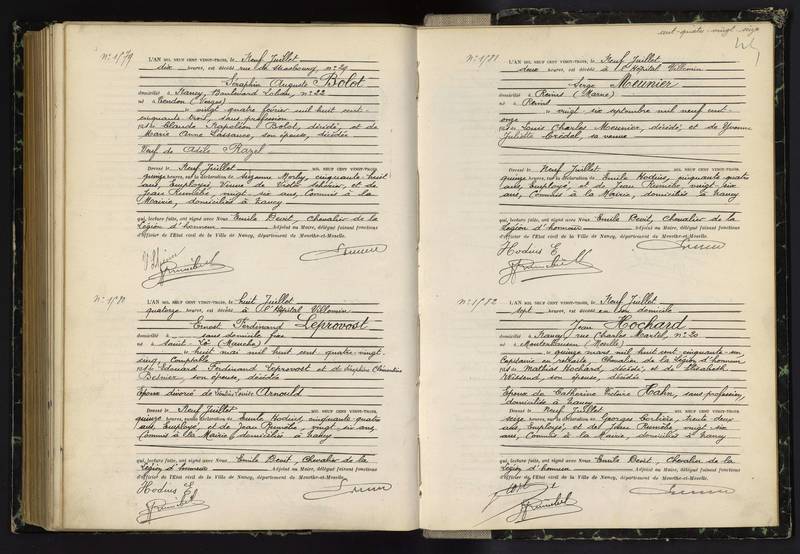 cent-quatre-vingt-seize
N° 1579 L'AN MIL NEUF CENT VINGT-TROIS, le Neuf Juillet
dix heures, est décédé rue de Strasbourg n° 29
Séraphin Auguste Bolot
domicilié à Nancy, Boulevard Lobau, n° 22
né à Xeudon (Vosges)
vingt quatre février mil huit cent-
cinquante trois, sans profession
fils de Claude Napoléon Bolot, décédé, et de
Marie Anne son épouse, décédée
Veuf de Adèle Razel
Dressé le Neuf Juillet MIL NEUF CENT VINGT-TROIS,
quinze heures, sur la déclaration de cinquante huit
ans, et de
Jean vingt six ans, Commis à la
Mairie, domiciliés à Nancy
qui, lecture faite, ont signé avec Nous Emile Devit, Chevalier de la
Légion d'honneur Adjoint au Maire, délégué faisant fonctions
d'Officier de l'Etat civil de la Ville de Nancy, département de Meurthe-et-Moselle.
N° 1580 L'AN MIL NEUF CENT VINGT-TROIS, le huit Juillet
quatorze heures, est décédé à l'Hôpital Villemin
Ernest Ferdinand Leprovost
domicilié à sans domicile fixe
né à Saint-Lô (Manche)
huit mai mil huit cent quatre vingt
cinq, Comptable
fils de Edouard Ferdinand Leprovost et de Clémentine
Besnier, son épouse, décédés
Epoux divorcé de Louise Arnould
Dressé le Neuf Juillet MIL NEUF CENT VINGT-TROIS,
quinze heures, sur la déclaration de Emile Hodius, cinquante quatre
ans, Employé, et de Jean vingt-six ans,
Commis à la Mairie, domiciliés à Nancy
qui, lecture faite, ont signé avec Nous Emile Devit, Chevalier de la
Légion d'honneur Adjoint au Maire, délégué faisant fonctions
d'Officier de l'Etat civil de la Ville de Nancy, département de Meurthe-et-Moselle.
Hodius E
N° 1581 L'AN MIL NEUF CENT VINGT-TROIS, le Neuf Juillet
deux heures, est décédé à l'Hôpital Villemin
Serge Meunier
domicilié à Reims (Marne)
né à Reims
vingt six septembre mil neuf cent-
onze
fils de Louis Charles Meunier, décédé, et de Yvonne
Juliette sa veuve
Dressé le Neuf Juillet MIL NEUF CENT VINGT-TROIS,
quinze heures, sur la déclaration de Emile Hodius, cinquante quatre
ans, Employé, et de Jean vingt-six
ans, Commis à la Mairie, domiciliés à Nancy
qui, lecture faite, ont signé avec Nous Emile Devit, Chevalier de la
Légion d'honneur Adjoint au Maire, délégué faisant fonctions
d'Officier de l'Etat civil de la Ville de Nancy, département de Meurthe-et-Moselle.
Hodius E
N° 1582 L'AN MIL NEUF CENT VINGT-TROIS, le Neuf Juillet
sept heures, est décédé en son domicile
Jean Hochard
domicilié à Nancy, rue Charles Martel, n° 20
né à Mouterhausen (Moselle)
quinze mars mil huit cent-cinquante-un
Capitaine en retraite, Chevalier de la Légion d'honneur
fils de Mathias Hochard, décédé, et de Elisabeth
son épouse, décédée
Epoux de Catherine Victoire Hahn, sans profession,
domiciliée à Nancy
Dressé le Neuf Juillet MIL NEUF CENT VINGT-TROIS,
seize heures, sur la déclaration de Georges trente-deux
ans, Employé, et de Jean vingt six
ans, Commis à la Mairie, domiciliés à Nancy
qui, lecture faite, ont signé avec Nous Emile Devit, Chevalier de la
Légion d'honneur Adjoint au Maire, délégué faisant fonctions
d'Officier de l'Etat civil de la Ville de Nancy, département de Meurthe-et-Moselle.